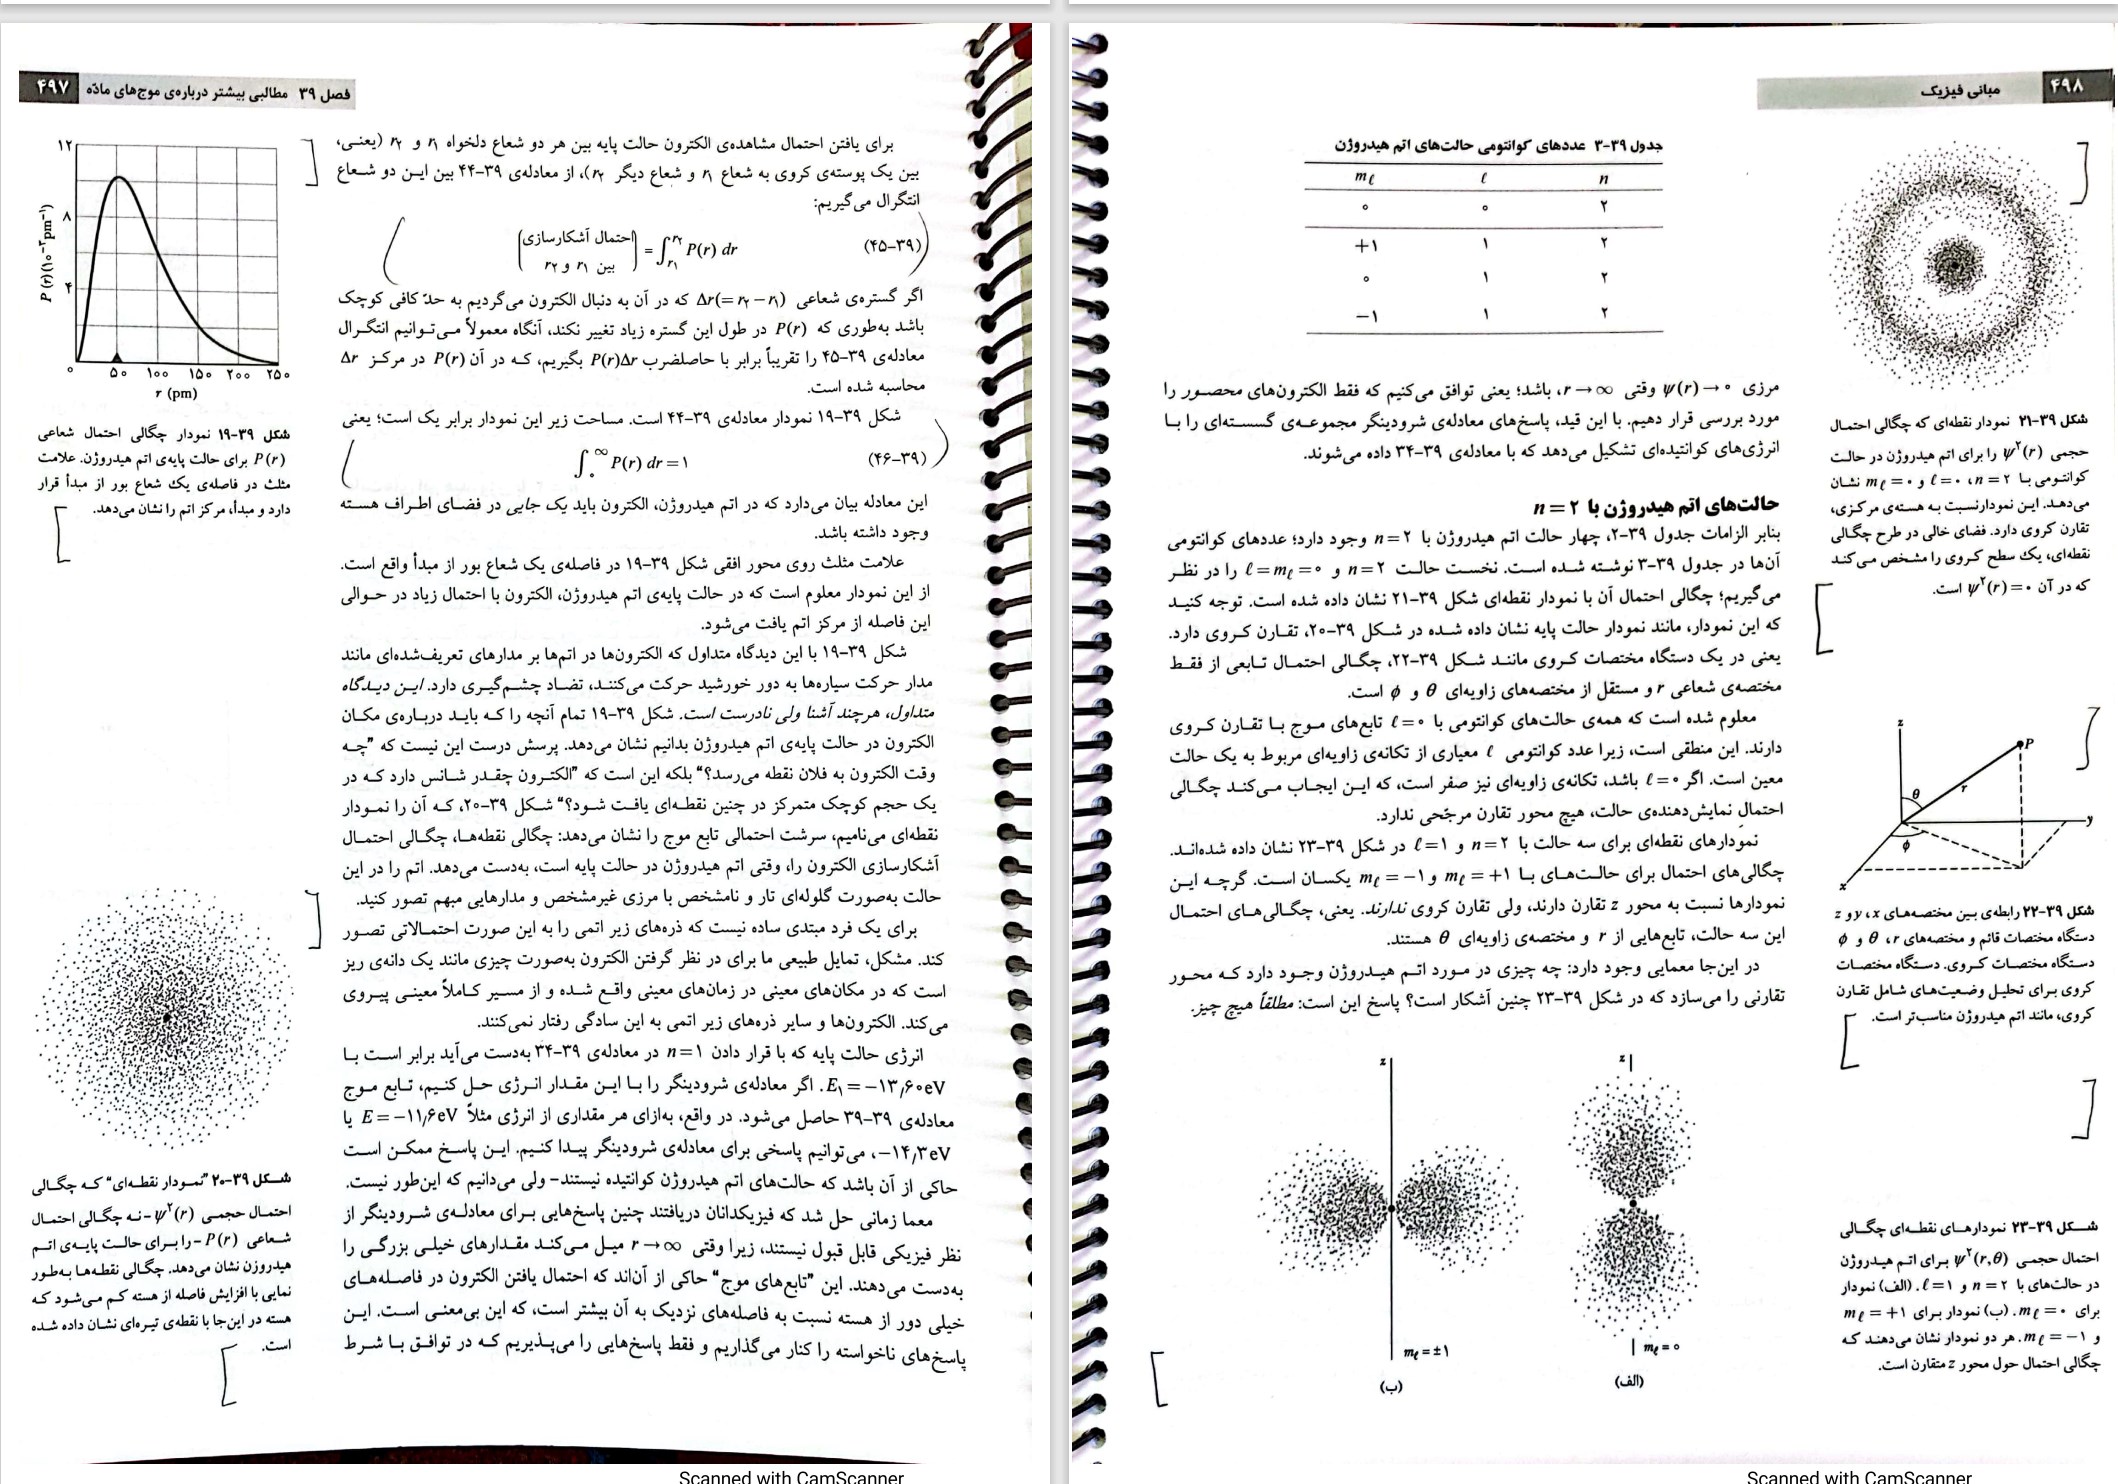 فصل ۳۹ مطالبی بیشتر درباره‌ی موج‌های مادّه ۴۹۷
برای یافتن احتمال مشاهده‌ی الکترون حالت پایه بین هر دو شعاع دلخواه r₁ و r₂ (یعنی،
بین یک پوسته‌ی کروی به شعاع r₁ و شعاع دیگر r₂)، از معادله‌ی ۳۹-۴۴ بین این دو شعاع
انتگرال می‌گیریم:
(احتمال آشکارسازی بین r₁ و r₂) = ∫_{r₁}^{r₂} P(r) dr (۳۹-۴۵)
اگر گستره‌ی شعاعی Δr(= r₂ − r₁) که در آن به دنبال الکترون می‌گردیم به حدّ کافی کوچک
باشد به‌طوری که P(r) در طول این گستره زیاد تغییر نکند، آنگاه معمولاً می‌توانیم انتگرال
معادله‌ی ۳۹-۴۵ را تقریباً برابر با حاصلضرب P(r)Δr بگیریم، که در آن P(r) در مرکز Δr
محاسبه شده است.
شکل ۳۹-۱۹ نمودار معادله‌ی ۳۹-۴۴ است. مساحت زیر این نمودار برابر یک است؛ یعنی
∫₀^∞ P(r) dr = ۱ (۳۹-۴۶)
این معادله بیان می‌دارد که در اتم هیدروژن، الکترون باید یک جایی در فضای اطراف هسته
وجود داشته باشد.
علامت مثلث روی محور افقی شکل ۳۹-۱۹ در فاصله‌ی یک شعاع بور از مبدأ واقع است.
از این نمودار معلوم است که در حالت پایه‌ی اتم هیدروژن، الکترون با احتمال زیاد در حوالی
این فاصله از مرکز اتم یافت می‌شود.
شکل ۳۹-۱۹ با این دیدگاه متداول که الکترون‌ها در اتم‌ها بر مدارهای تعریف‌شده‌ای مانند
مدار حرکت سیاره‌ها به دور خورشید حرکت می‌کنند، تضاد چشم‌گیری دارد. این دیدگاه
متداول، هرچند آشنا ولی نادرست است. شکل ۳۹-۱۹ تمام آنچه را که باید درباره‌ی مکان
الکترون در حالت پایه‌ی اتم هیدروژن بدانیم نشان می‌دهد. پرسش درست این نیست که "چه
وقت الکترون به فلان نقطه می‌رسد؟" بلکه این است که "الکترون چقدر شانس دارد که در
یک حجم کوچک متمرکز در چنین نقطه‌ای یافت شود؟" شکل ۳۹-۲۰، که آن را نمودار
نقطه‌ای می‌نامیم، سرشت احتمالی تابع موج را نشان می‌دهد: چگالی نقطه‌ها، چگالی احتمال
آشکارسازی الکترون را، وقتی اتم هیدروژن در حالت پایه است، به‌دست می‌دهد. اتم را در این
حالت به‌صورت گلوله‌ای تار و نامشخص با مرزی غیرمشخص و مدارهایی مبهم تصور کنید.
برای یک فرد مبتدی ساده نیست که ذره‌های زیر اتمی را به این صورت احتمالاتی تصور
کند. مشکل، تمایل طبیعی ما برای در نظر گرفتن الکترون به‌صورت چیزی مانند یک دانه‌ی ریز
است که در مکان‌های معینی در زمان‌های معینی واقع شده و از مسیر کاملاً معینی پیروی
می‌کند. الکترون‌ها و سایر ذره‌های زیر اتمی به این سادگی رفتار نمی‌کنند.
انرژی حالت پایه که با قرار دادن n = ۱ در معادله‌ی ۳۹-۳۴ به‌دست می‌آید برابر است با
E₁ = −۱۳٫۶۰ eV. اگر معادله‌ی شرودینگر را با این مقدار انرژی حل کنیم، تابع موج
معادله‌ی ۳۹-۳۹ حاصل می‌شود. در واقع، به‌ازای هر مقداری از انرژی مثلاً E = −۱۱٫۶ eV یا
−۱۴٫۳ eV، می‌توانیم پاسخی برای معادله‌ی شرودینگر پیدا کنیم. این پاسخ ممکن است
حاکی از آن باشد که حالت‌های اتم هیدروژن کوانتیده نیستند- ولی می‌دانیم که این‌طور نیست.
معما زمانی حل شد که فیزیکدانان دریافتند چنین پاسخ‌هایی برای معادله‌ی شرودینگر از
نظر فیزیکی قابل قبول نیستند، زیرا وقتی r → ∞ میل می‌کند مقدارهای خیلی بزرگی را
به‌دست می‌دهند. این "تابع‌های موج" حاکی از آن‌اند که احتمال یافتن الکترون در فاصله‌های
خیلی دور از هسته نسبت به فاصله‌های نزدیک به آن بیشتر است، که این بی‌معنی است. این
پاسخ‌های ناخواسته را کنار می‌گذاریم و فقط پاسخ‌هایی را می‌پذیریم که در توافق با شرط
P(r)(۱۰⁻³ pm⁻¹)
۱۲
۸
۴
۰ ۵۰ ۱۰۰ ۱۵۰ ۲۰۰ ۲۵۰
r (pm)
شکل ۳۹-۱۹ نمودار چگالی احتمال شعاعی
P(r) برای حالت پایه‌ی اتم هیدروژن. علامت
مثلث در فاصله‌ی یک شعاع بور از مبدأ قرار
دارد و مبدأ، مرکز اتم را نشان می‌دهد.
شکل ۳۹-۲۰ "نمودار نقطه‌ای" که چگالی
احتمال حجمی ψ²(r) -نه چگالی احتمال
شعاعی P(r) -را برای حالت پایه‌ی اتم
هیدروزن نشان می‌دهد. چگالی نقطه‌ها به‌طور
نمایی با افزایش فاصله از هسته کم می‌شود که
هسته در این‌جا با نقطه‌ی تیره‌ای نشان داده شده
است.
Scanned with CamScanner
مبانی فیزیک ۴۹۸
جدول ۳۹-۳ عددهای کوانتومی حالت‌های اتم هیدروژن
n ℓ mℓ
۲ ۰ ۰
۲ ۱ +۱
۲ ۱ ۰
۲ ۱ −۱
مرزی ψ(r) → ۰ وقتی r → ∞، باشد؛ یعنی توافق می‌کنیم که فقط الکترون‌های محصور را
مورد بررسی قرار دهیم. با این قید، پاسخ‌های معادله‌ی شرودینگر مجموعه‌ی گسسته‌ای را با
انرژی‌های کوانتیده‌ای تشکیل می‌دهد که با معادله‌ی ۳۹-۳۴ داده می‌شوند.
حالت‌های اتم هیدروژن با n = ۲
بنابر الزامات جدول ۳۹-۲، چهار حالت اتم هیدروژن با n = ۲ وجود دارد؛ عددهای کوانتومی
آن‌ها در جدول ۳۹-۳ نوشته شده است. نخست حالت n = ۲ و ℓ = mℓ = ۰ را در نظر
می‌گیریم؛ چگالی احتمال آن با نمودار نقطه‌ای شکل ۳۹-۲۱ نشان داده شده است. توجه کنید
که این نمودار، مانند نمودار حالت پایه نشان داده شده در شکل ۳۹-۲۰، تقارن کروی دارد.
یعنی در یک دستگاه مختصات کروی مانند شکل ۳۹-۲۲، چگالی احتمال تابعی از فقط
مختصه‌ی شعاعی r و مستقل از مختصه‌های زاویه‌ای θ و ϕ است.
معلوم شده است که همه‌ی حالت‌های کوانتومی با ℓ = ۰ تابع‌های موج با تقارن کروی
دارند. این منطقی است، زیرا عدد کوانتومی ℓ معیاری از تکانه‌ی زاویه‌ای مربوط به یک حالت
معین است. اگر ℓ = ۰ باشد، تکانه‌ی زاویه‌ای نیز صفر است، که این ایجاب می‌کند چگالی
احتمال نمایش‌دهنده‌ی حالت، هیچ محور تقارن مرجّحی ندارد.
نمودارهای نقطه‌ای برای سه حالت با n = ۲ و ℓ = ۱ در شکل ۳۹-۲۳ نشان داده شده‌اند.
چگالی‌های احتمال برای حالت‌های با mℓ = +۱ و mℓ = −۱ یکسان است. گرچه این
نمودارها نسبت به محور z تقارن دارند، ولی تقارن کروی ندارند. یعنی، چگالی‌های احتمال
این سه حالت، تابع‌هایی از r و مختصه‌ی زاویه‌ای θ هستند.
در این‌جا معمایی وجود دارد: چه چیزی در مورد اتم هیدروژن وجود دارد که محور
تقارنی را می‌سازد که در شکل ۳۹-۲۳ چنین آشکار است؟ پاسخ این است: مطلقاً هیچ چیز.
z
mℓ = ±۱
(ب)
z
mℓ = ۰
(الف)
شکل ۳۹-۲۱ نمودار نقطه‌ای که چگالی احتمال
حجمی ψ²(r) را برای اتم هیدروژن در حالت
کوانتومی با n = ۲، ℓ = ۰ و mℓ = ۰ نشان
می‌دهد. این نمودارنسبت به هسته‌ی مرکزی،
تقارن کروی دارد. فضای خالی در طرح چگالی
نقطه‌ای، یک سطح کروی را مشخص می‌کند
که در آن ψ²(r) = ۰ است.
z
P
θ
r
y
ϕ
x
شکل ۳۹-۲۲ رابطه‌ی بین مختصه‌های x، y و z
دستگاه مختصات قائم و مختصه‌های r، θ و ϕ
دستگاه مختصات کروی. دستگاه مختصات
کروی برای تحلیل وضعیت‌های شامل تقارن
کروی، مانند اتم هیدروژن مناسب‌تر است.
شکل ۳۹-۲۳ نمودارهای نقطه‌ای چگالی
احتمال حجمی ψ²(r,θ) برای اتم هیدروژن
در حالت‌های با n = ۲ و ℓ = ۱. (الف) نمودار
برای mℓ = ۰. (ب) نمودار برای mℓ = +۱
و mℓ = −۱. هر دو نمودار نشان می‌دهند که
چگالی احتمال حول محور z متقارن است.
Scanned with CamScanner